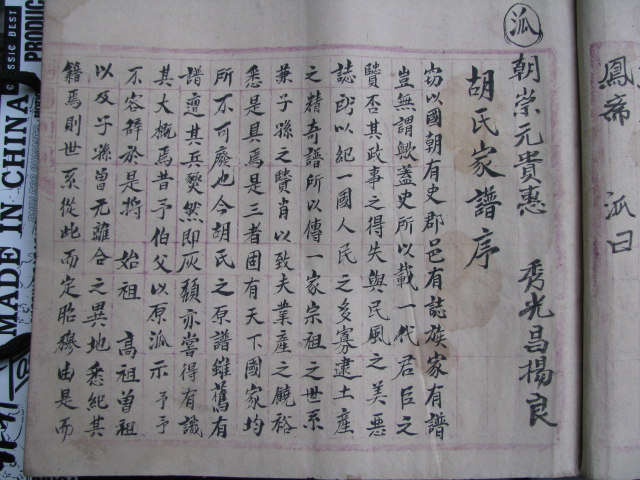 派
朝崇元貴惠 秀光昌揚良
胡氏家譜序
窃以國朝有史郡邑有誌族家有譜
豈無謂歟蓋史所以載一代君臣之
賢否其政事之得失與民風之美惡
誌所以紀一國人民之多寡建土產
之精奇譜所以傳一家宗祖之世系
兼子孫之賢肖以致夫業產之饒裕
悉是具焉是三者固有天下國家均
所不可廢也今胡氏之原譜雖舊有
譜遭其兵燹然即灰頹亦嘗得有識
其大概焉昔予伯父以原派示予予
不容辭於是將 始祖 高祖曾祖
以及子孫曾元離合之異地悉紀其
籍焉則世系從此而定昭穆由是而
鳳 派曰
MADE IN CHINA
CLASSIC BEST
PRODUC